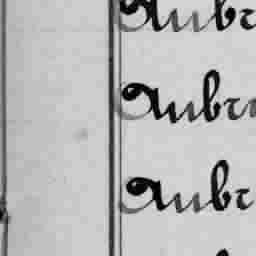 Aubr
Aubre
Aubr